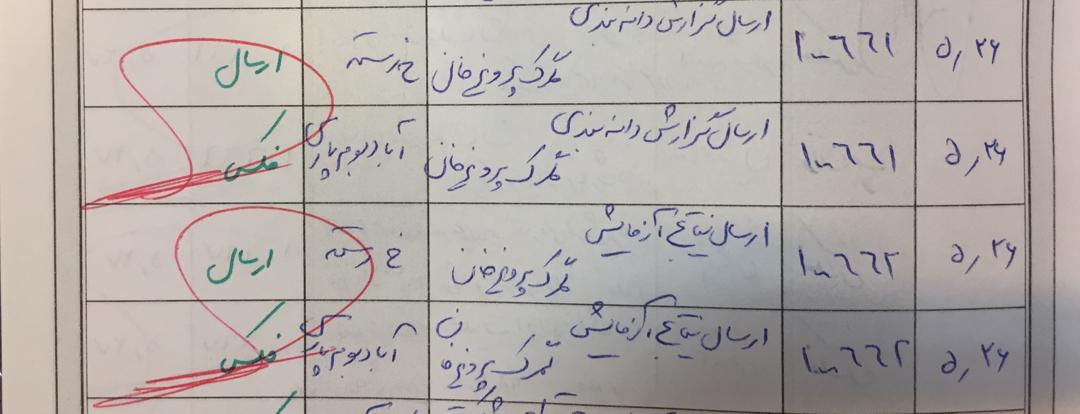 ۵,۲۶
۱۰۰۶۶۱
ارسال گزارش دانه بندی
گمرک پرویزخان
ارسال
۵,۲۶
۱۰۰۶۶۱
ارسال گزارش دانه بندی
گمرک پرویزخان
آبادبوم پارس
فکس
۵,۲۶
۱۰۰۶۶۲
ارسال نتایج آزمایش
گمرک پرویزخان
ارسال
۵,۲۶
۱۰۰۶۶۲
ارسال نتایج آزمایش
گمرک پرویزخان
آبادبوم پارس
فکس